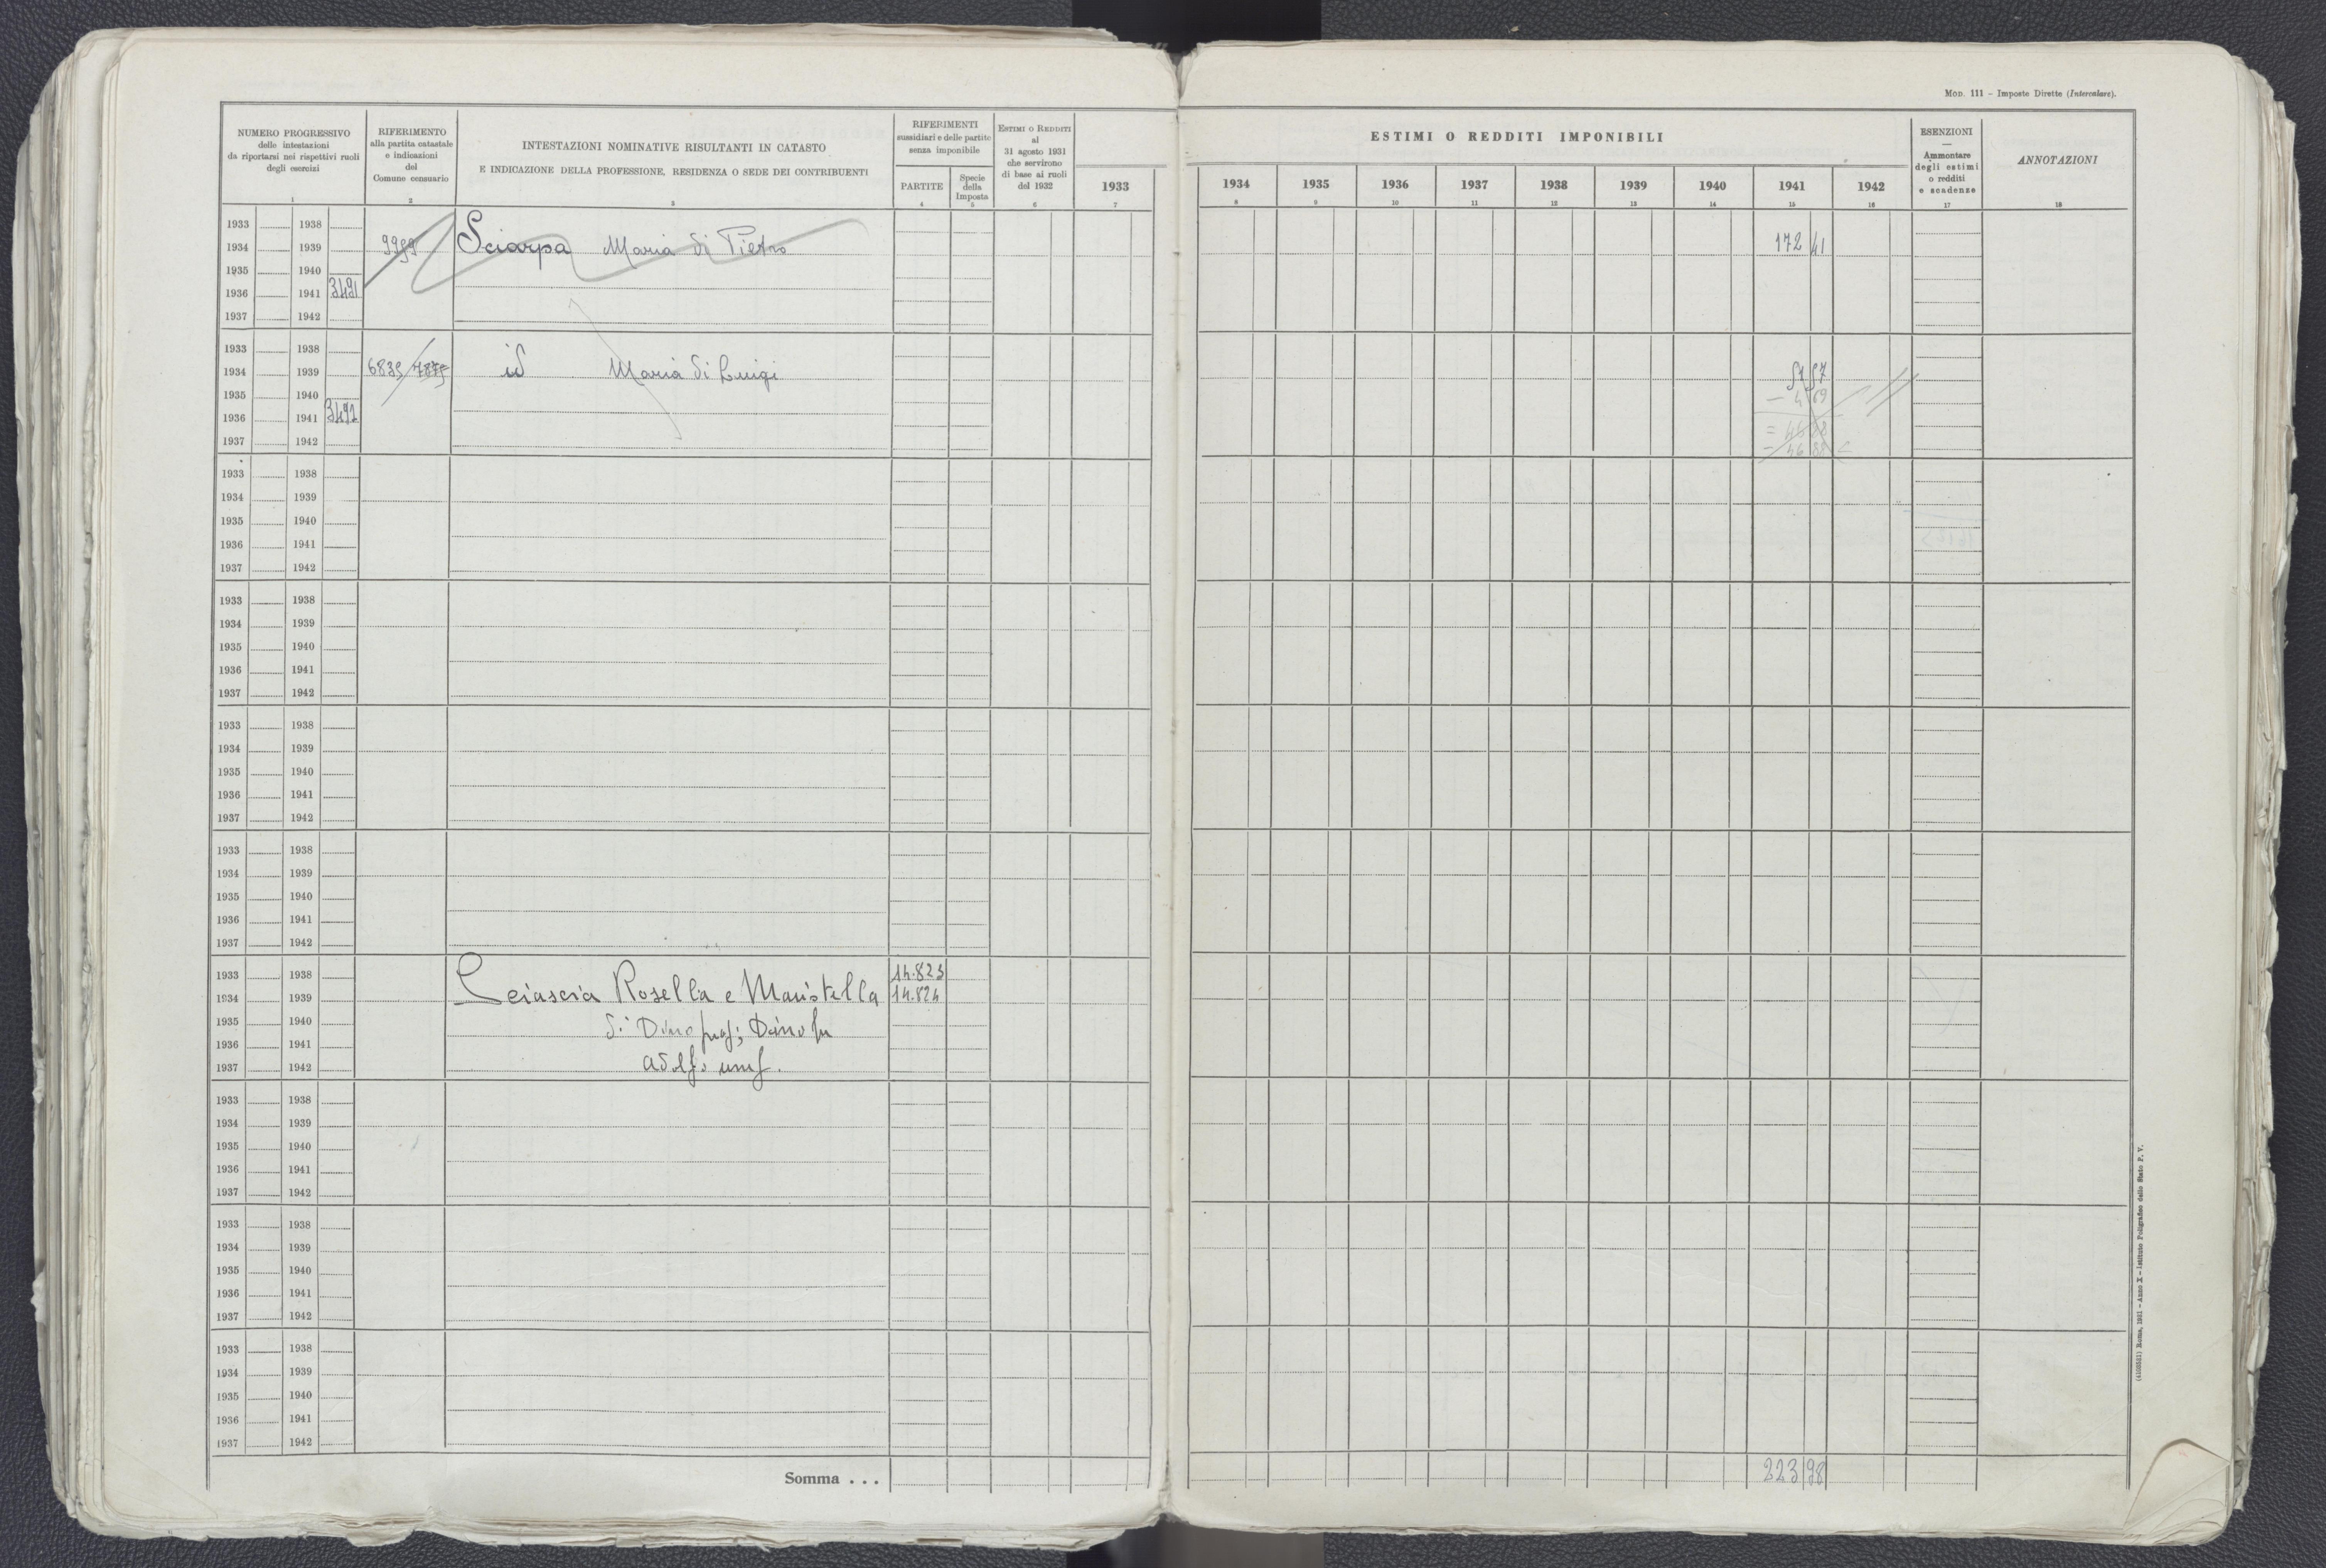 MOD. 111 - Imposte Dirette (Intercalare).
NUMERO PROGRESSIVO
delle intestazioni
da riportarsi nei rispettivi ruoli
degli esercizi
1
RIFERIMENTO
alla partita catastale
e indicazioni
del
Comune censuario
2
INTESTAZIONI NOMINATIVE RISULTANTI IN CATASTO
E INDICAZIONE DELLA PROFESSIONE, RESIDENZA O SEDE DEI CONTRIBUENTI
3
RIFERIMENTI
sussidiari e delle partite
senza imponibile
PARTITE
4
Specie
della
Imposta
5
ESTIMI O REDDITI
al
31 agosto 1931
che servirono
di base ai ruoli
del 1932
6
1933
7
ESTIMI O REDDITI IMPONIBILI
1934 1935 1936 1937 1938 1939 1940 1941 1942
8 9 10 11 12 13 14 15 16
ESENZIONI
—
Ammontare
degli estimi
o redditi
e scadenze
17
ANNOTAZIONI
18
1933 1938
1934 1939 9999 Sciarpa Maria di Pietro 172 41
1935 1940
1936 1941 3491
1937 1942
1933 1938
1934 1939 6839 7875 id Maria di Luigi 51 57
1935 1940 - 4 69
1936 1941 3492
1937 1942 = 46 88
= 46 88
1933 1938
1934 1939
1935 1940
1936 1941
1937 1942
1933 1938
1934 1939
1935 1940
1936 1941
1937 1942
1933 1938
1934 1939
1935 1940
1936 1941
1937 1942
1933 1938
1934 1939
1935 1940
1936 1941
1937 1942
1933 1938 14.823
1934 1939 Sciascia Rosella e Maristella 14.824
1935 1940 di Dino prop; Dino fu
1936 1941
1937 1942 Adolfo usuf.
1933 1938
1934 1939
1935 1940
1936 1941
1937 1942
1933 1938
1934 1939
1935 1940
1936 1941
1937 1942
1933 1938
1934 1939
1935 1940
1936 1941
1937 1942
Somma . . . 223 98
(4103531) Roma, 1931 - Anno X - Istituto Poligrafico dello Stato P. V.